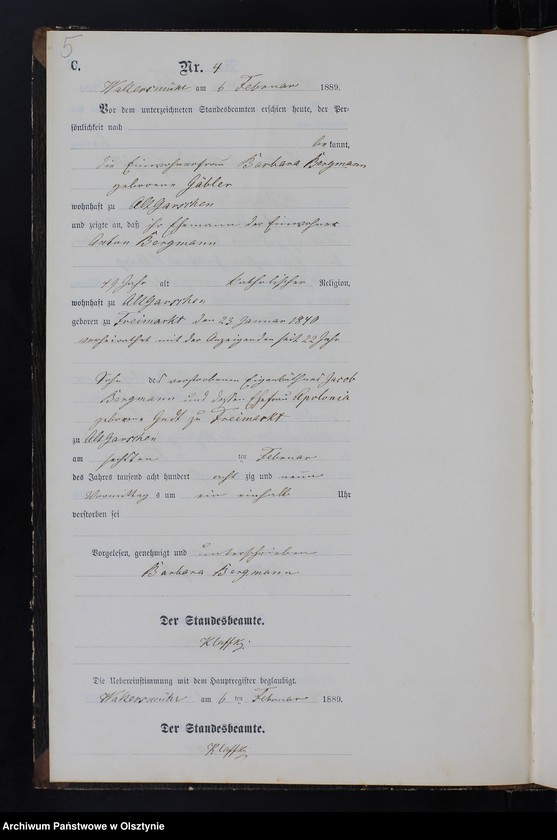 5
C.
Nr. 4
Wallersmühl am 6 Februar 1889.
Vor dem unterzeichneten Standesbeamten erschien heute, der Per-
sönlichkeit nach
bekannt,
die Einwohnerfrau Barbara Bergmann
geborene Gäbler
wohnhaft zu Alt Garschen
und zeigte an, daß ihr Ehemann der Einwohner
Anton Bergmann
49 Jahr alt katholischer Religion,
wohnhaft zu Alt Garschen
geboren zu Freimarkt den 23 Januar 1840
verheirathet mit der Anzeigenden seit 22 Jahr
Sohn des verstorbenen Eigenkäthners Jacob
Bergmann und dessen Ehefrau Apolonia
geborene zu Freimarkt
zu Alt Garschen
am sechsten ten Februar
des Jahres tausend acht hundert acht zig und neun
Vormittags um ein einhalb Uhr
verstorben sei
Vorgelesen, genehmigt und unterschrieben
Barbara Bergmann
Der Standesbeamte.
Klaffki
Die Uebereinstimmung mit dem Hauptregister beglaubigt.
Wallersmühl am 6 ten Februar 1889.
Der Standesbeamte.
Klaffki
Archiwum Państwowe w Olsztynie